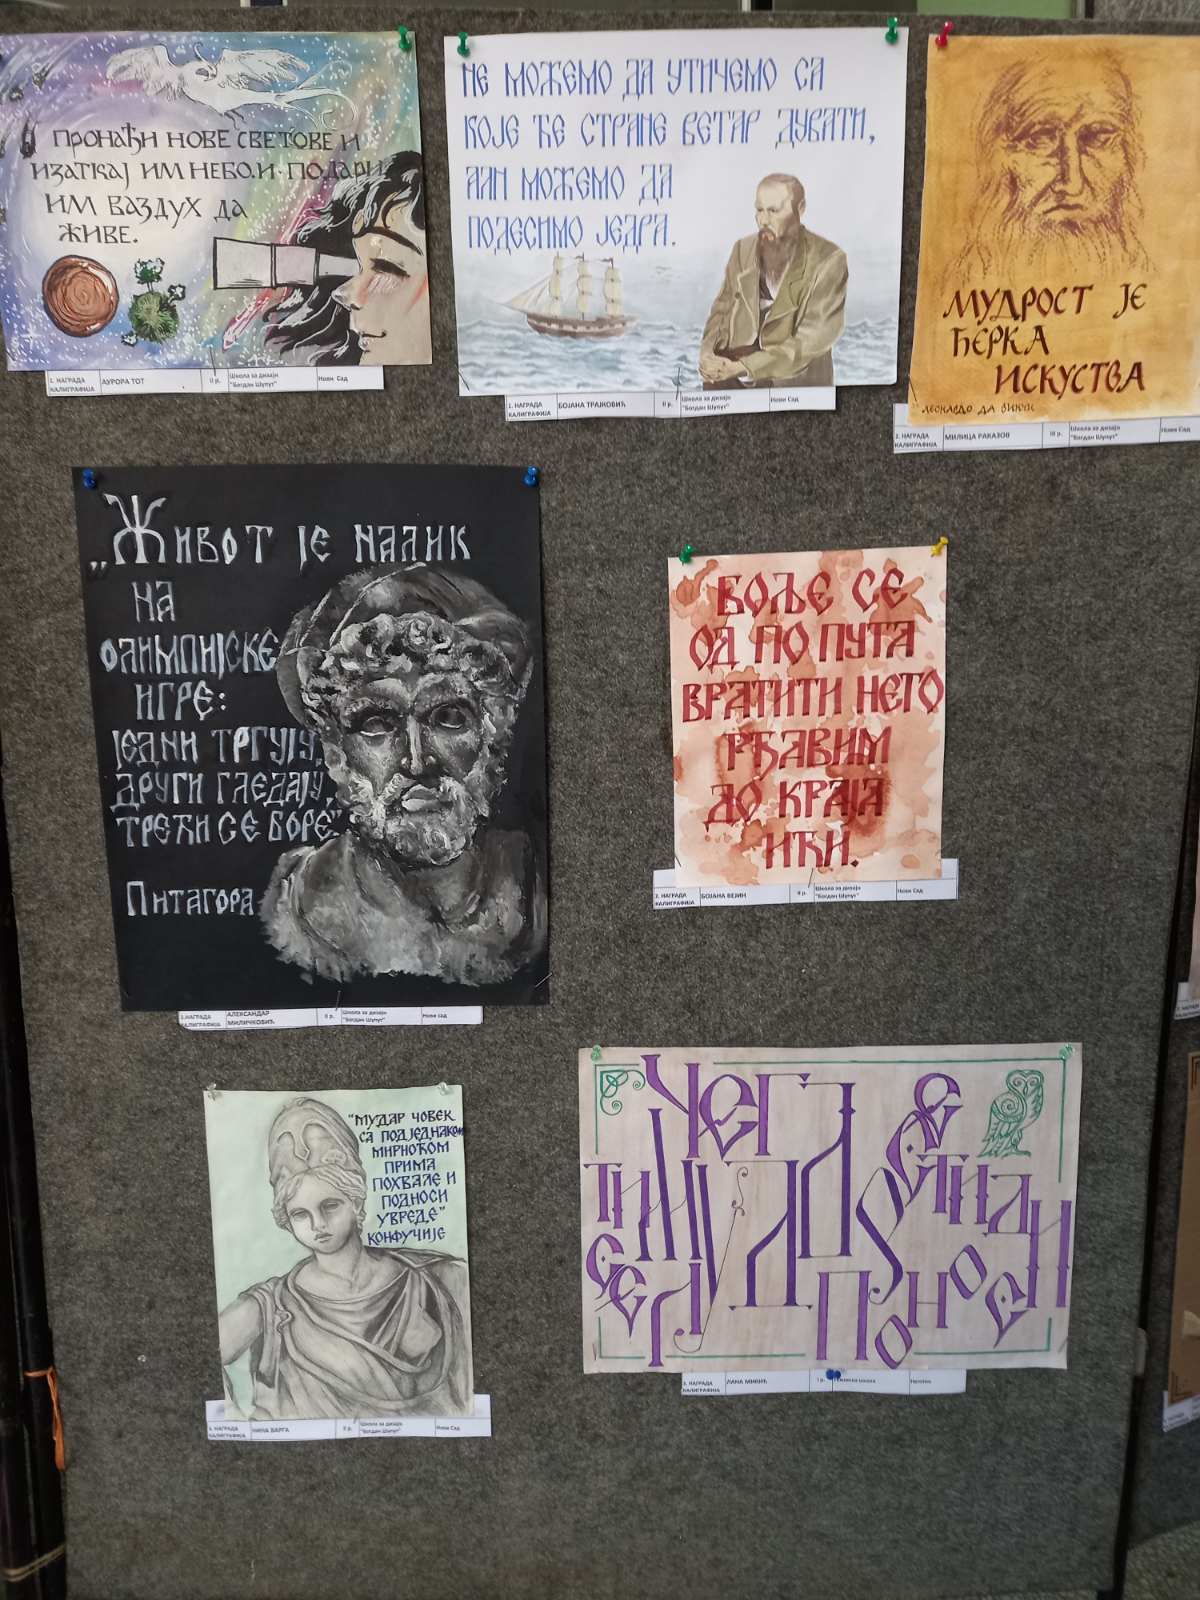 ПРОНАЂИ НОВЕ СВЕТОВЕ И
ИЗАТКАЈ ИМ НЕБО. И ПОДАРИ
ИМ ВАЗДУХ ДА
ЖИВЕ.
1. НАГРАДА
КАЛИГРАФИЈА
АУРОРА ТОТ
II р.
Школа за дизајн
"Богдан Шупут"
Нови Сад
НЕ МОЖЕМО ДА УТИЧЕМО СА
КОЈЕ ЋЕ СТРАНЕ ВЕТАР ДУВАТИ,
АЛИ МОЖЕМО ДА
ПОДЕСИМО ЈЕДРА.
1. НАГРАДА
КАЛИГРАФИЈА
БОЈАНА ТРАЈКОВИЋ
II р.
Школа за дизајн
"Богдан Шупут"
Нови Сад
МУДРОСТ ЈЕ
ЋЕРКА
ИСКУСТВА
ЛЕОНАРДО ДА ВИНЧИ
2. НАГРАДА
КАЛИГРАФИЈА
МИЛИЦА РАКАЗОВ
III р.
Школа за дизајн
"Богдан Шупут"
Нови Сад
„Живот је налик
на
олимпијске
игре:
једни тргују,
други гледају,
трећи се боре"
Питагора
КАЛИГРАФИЈА
АЛЕКСАНДАР
МИЛИЧКОВИЋ
II р.
Школа за дизајн
"Богдан Шупут"
Нови Сад
БОЉЕ СЕ
ОД ПО ПУТА
ВРАТИТИ НЕГО
РЂАВИМ
ДО КРАЈА
ИЋИ.
2. НАГРАДА
КАЛИГРАФИЈА
БОЈАНА ВЕЗИН
II р.
Школа за дизајн
"Богдан Шупут"
Нови Сад
"МУДАР ЧОВЕК
СА ПОДЈЕДНАКОМ
МИРНОЋОМ
ПРИМА
ПОХВАЛЕ И
ПОДНОСИ
УВРЕДЕ"
КОНФУЧИЈЕ
3. НАГРАДА
КАЛИГРАФИЈА
НИНА ВАРГА
II р.
Школа за дизајн
"Богдан Шупут"
Нови Сад
ЧЕГА СЕ
МУДАР СТИДИ
ПОНОСЕ
3. НАГРАДА
КАЛИГРАФИЈА
I р.
школа